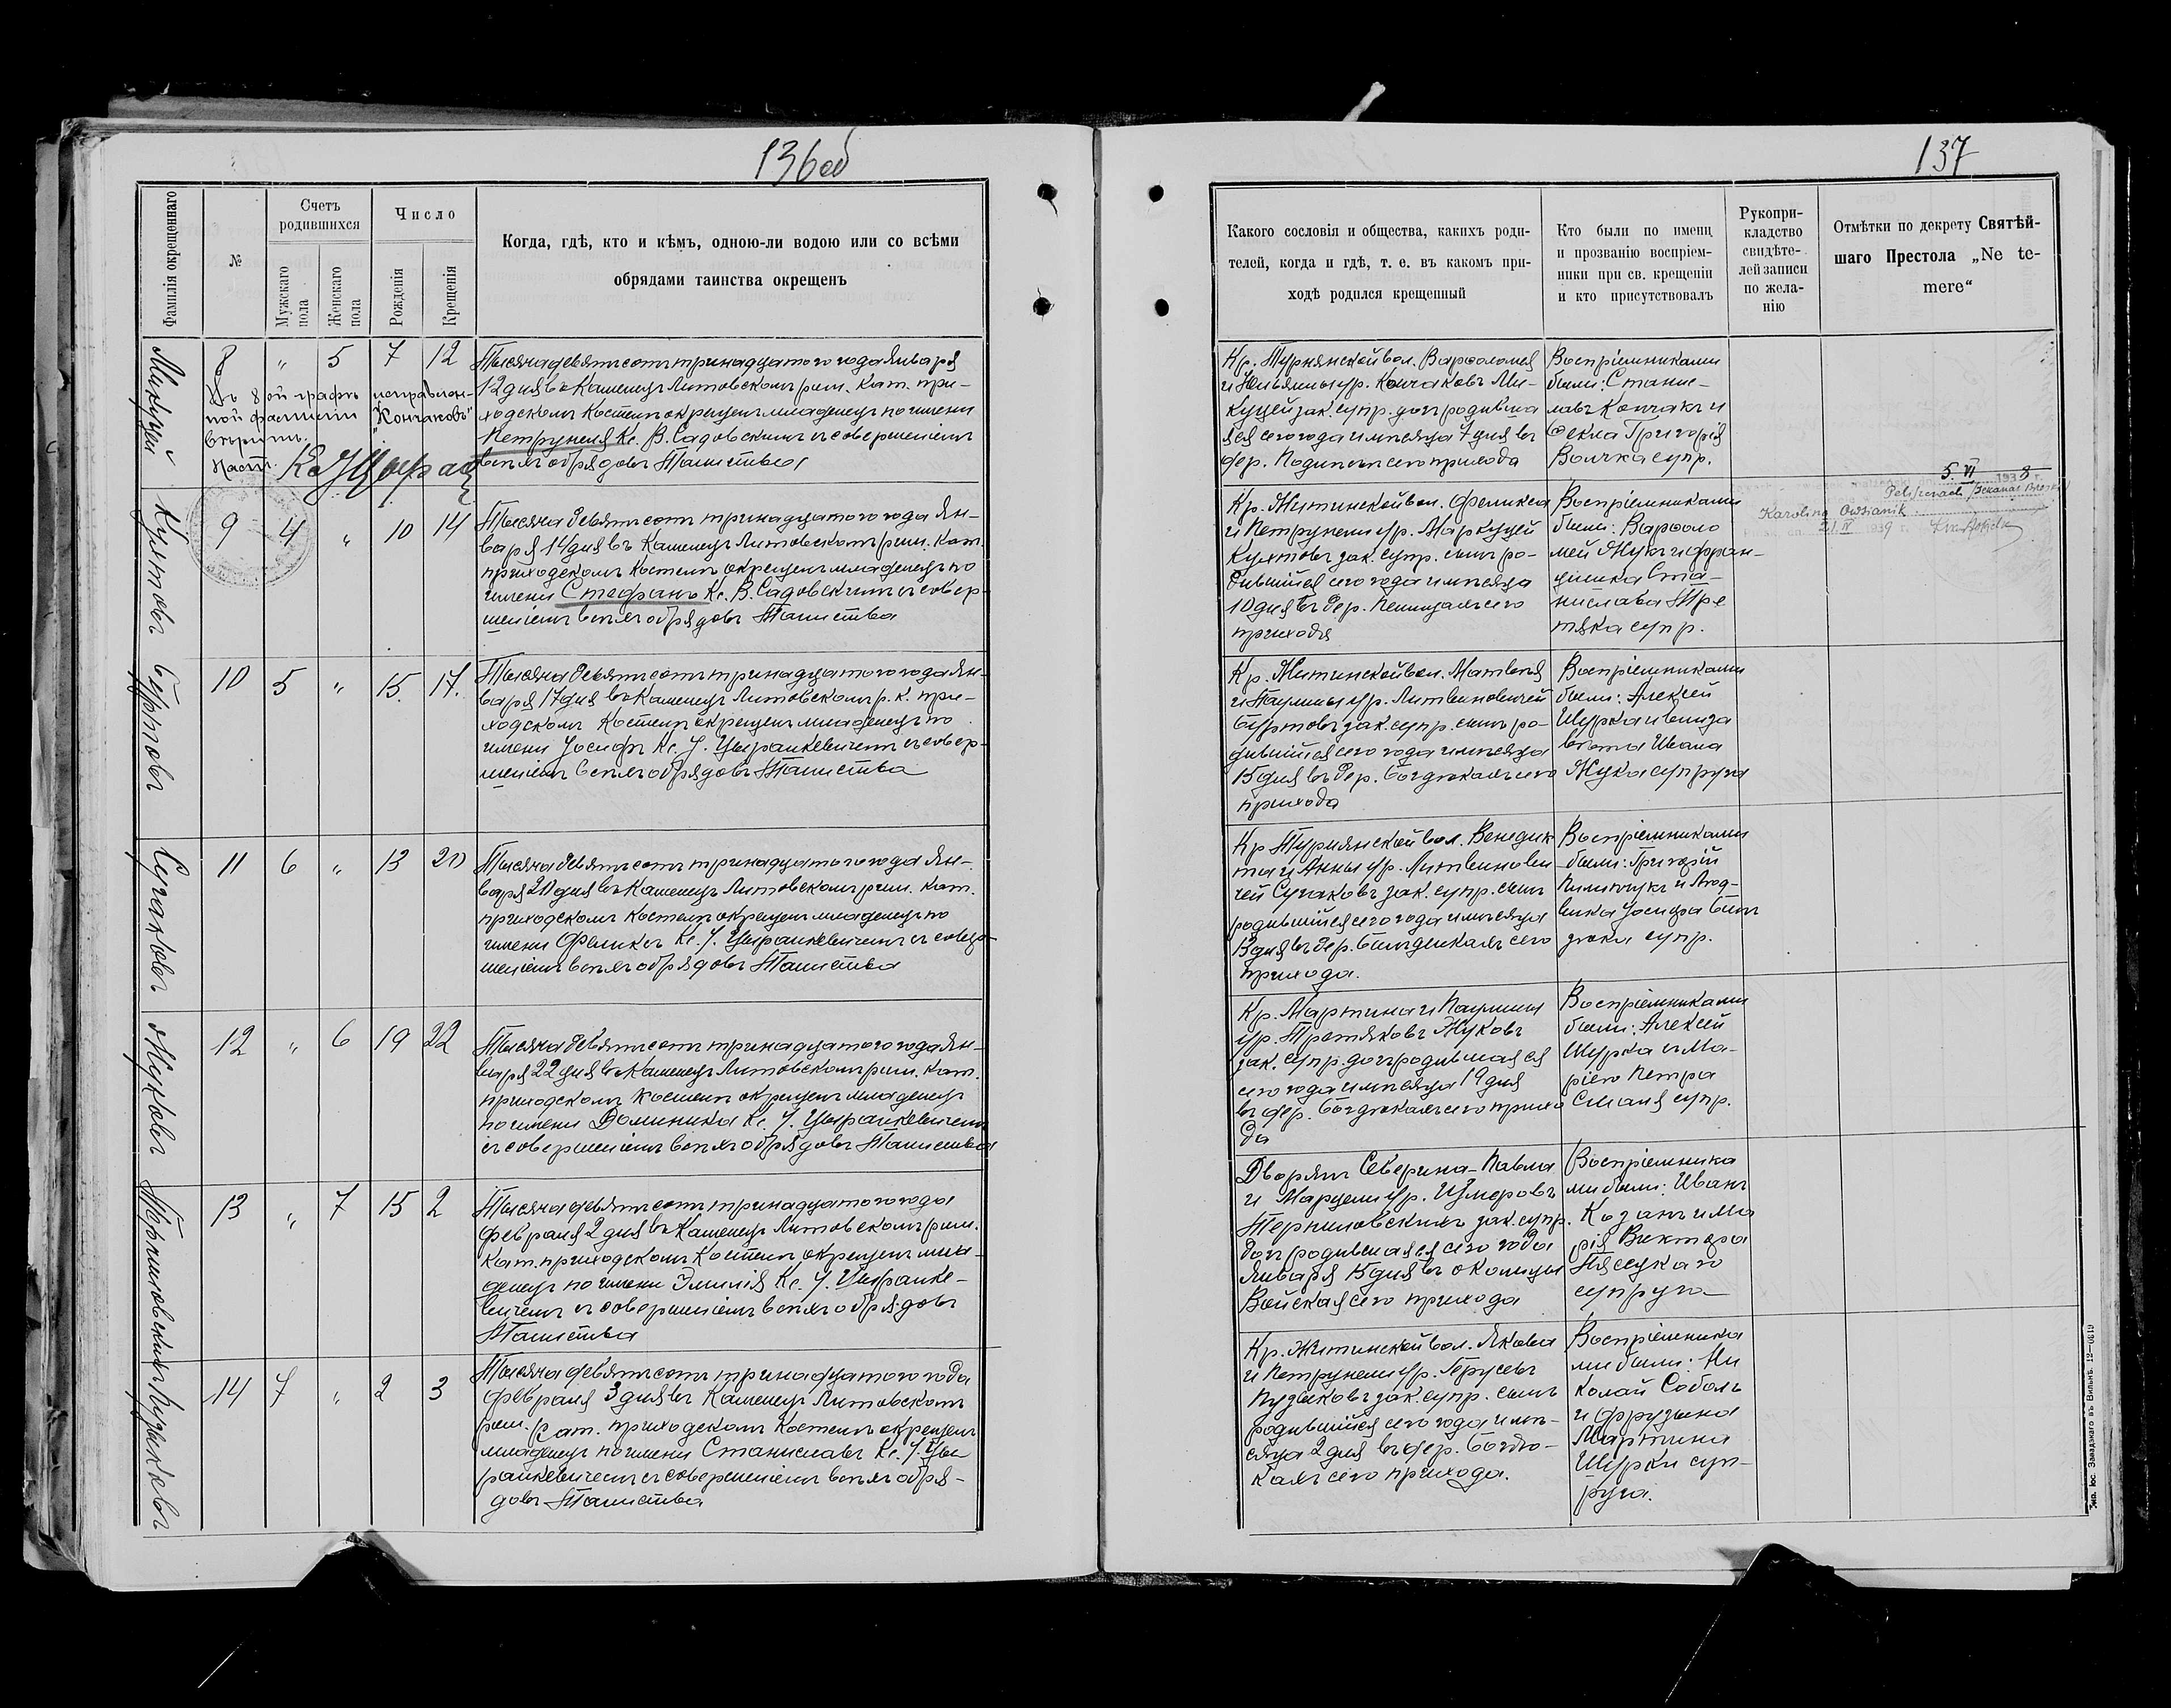 136об
Фамилія окрещеннаго
№
Счетъ
родившихся
Мужскаго
пола
Женскаго
пола
Число
Рожденія
Крещенія
Когда, гдѣ, кто и кѣмъ, одною-ли водою или со всѣми
обрядами таинства окрещенъ
Микуцей
8 " 5 7 12
Въ 8ой графѣ исправлен-
ной фамиліи "Кончаковъ"
вѣрить.
Наст.
Тысяча девятьсотъ тринадцатого года Января
12 дня въ Каменецъ Литовскомъ рим. кат. при-
ходскомъ Костелѣ окрещенъ младенецъ по имени
Петрунеля Кс. В. Садовскимъ съ совершеніемъ
всѣхъ обрядовъ Таинства
Кухтовъ
9 4 " 10 14
Тысяча девятьсотъ тринадцатого года Ян-
варя 14 дня въ Каменецъ Литовскомъ рим. кат.
приходскомъ Костелѣ окрещенъ младенецъ по
имени Стефанъ Кс. В. Садовскимъ съ совер-
шеніемъ всѣхъ обрядовъ Таинства
Буртовъ
10 5 " 15. 17.
Тысяча девятьсотъ тринадцатого года Ян-
варя 17 дня въ Каменецъ Литовскомъ р. к. при-
ходскомъ Костелѣ окрещенъ младенецъ по
имени Іосифъ Кс. І. Цыранкевичемъ съ совер-
шеніемъ всѣхъ обрядовъ Таинства
Сугаковъ
11 6 " 13 20
Тысяча девятьсотъ тринадцатого года Ян-
варя 20 дня въ Каменецъ Литовскомъ рим. кат.
приходскомъ Костелѣ окрещенъ младенецъ по
имени Феликсъ Кс. І. Цыранкевичемъ съ совер-
шеніемъ всѣхъ обрядовъ Таинства
Жуковъ
12 " 6 19 22
Тысяча девятьсотъ тринадцатого года Ян-
варя 22 дня въ Каменецъ Литовскомъ рим. кат.
приходскомъ Костелѣ окрещенъ младенецъ
по имени Доминика Кс. І. Цыранкевичемъ
съ совершеніемъ всѣхъ обрядовъ Таинства
Терпиловскихъ
13 " 7 15 2
Тысяча девятьсотъ тринадцатого года
февраля 2 дня въ Каменецъ Литовскомъ рим.
кат. приходскомъ Костелѣ окрещенъ мла-
денецъ по имени Эмилія Кс. І. Цыранке-
вичемъ съ совершеніемъ всѣхъ обрядовъ
Таинства
Пузыковъ
14 7 " 2 3
Тысяча девятьсотъ тринадцатого года
февраля 3 дня въ Каменецъ Литовскомъ
рим. Кат. приходскомъ Костелѣ окрещенъ
младенецъ по имени Станиславъ Кс. І. Цы
ранкевичемъ съ совершеніемъ всѣхъ обря-
довъ Таинства
137
Какого сословія и общества, какихъ роди-
телей, когда и гдѣ, т. е. въ какомъ при-
ходѣ родился крещенный
Кто были по имени
и прозванію воспріем-
ники при св. крещеніи
и кто присутствовалъ
Рукопри-
кладство
свидѣте-
лей записи
по жела-
нію
Отмѣтки по декрету Святѣй-
шаго Престола „Ne te-
mere“
Кр. Турнянской вол. Варфоломея
и Юльянны ур. Кончаковъ Ми-
куцей зак. супр. дочь родивша
яся сего года и мѣсяца 7 дня въ
дер. сего прихода
Воспріемниками
были: Станис-
лавъ Кончакъ и
Фекла Григорія
Волчка супр.
Кр. Житинской вол. Феликса
и Петрунели ур. Маркуцей
Кухтовъ зак. супр. сынъ ро-
дившійся сего года и мѣсяца
10 дня въ дер. сего
прихода
Воспріемниками
были: Варфоло
мей Жукъ и Фран-
цишка Ста-
нислава Тре
тяка супр.
5. VI 1938
Karolina Owsianik
21. IV 1939 r.
Кр. Житинской вол. Матвея
и Паулины ур. Литвиновичей
Буртовъ зак. супр. сынъ ро-
дившійся сего года и мѣсяца
15 дня въ дер. Богдюкахъ сего
прихода
Воспріемниками
были: Алексей
Шурка и Елиза
вета Ивана
Жука супруга
Кр Турнянской вол. Венедик
та и Анны ур. Литвинови
чей Сугаковъ зак. супр. сынъ
родившійся сего года и мѣсяца
13 дня въ дер. сего
прихода.
Воспріемниками
были: Григорій
Пилипчукъ и Люд-
вика Іосифа
супр.
Кр. Мартина и Паулины
ур. Третяковъ Жуковъ
зак. супр. дочь родившаяся
сего года и мѣсяца 19 дня
въ дер. Богдюкахъ сего прихо
да
Воспріемниками
были: Алексей
Шурка и Ма-
рія Петра
супр.
Дворянъ Северина-Павла
и Марцели ур. Измеровъ
Терпиловскихъ зак. супр.
дочь родившаяся сего года
Января 15 дня въ околицы
Войская сего прихода
Воспріемника
ми были: Иванъ
Козакъ и Ма
рія Виктора
Пясецкаго
супруга
Кр. Житинской вол. Якова
и Петрунели ур. Герусевъ
Пузыковъ зак. супр. сынъ
родившійся сего года и мѣ-
сяца 2 дня въ дер. Богдю-
кахъ сего прихода.
Воспріемника
ми были: Ни
колай Соболь
и Фрузына
Мартина
Шурки суп-
руга.
Іос. Завадзкаго въ Вильнѣ. 12—0619